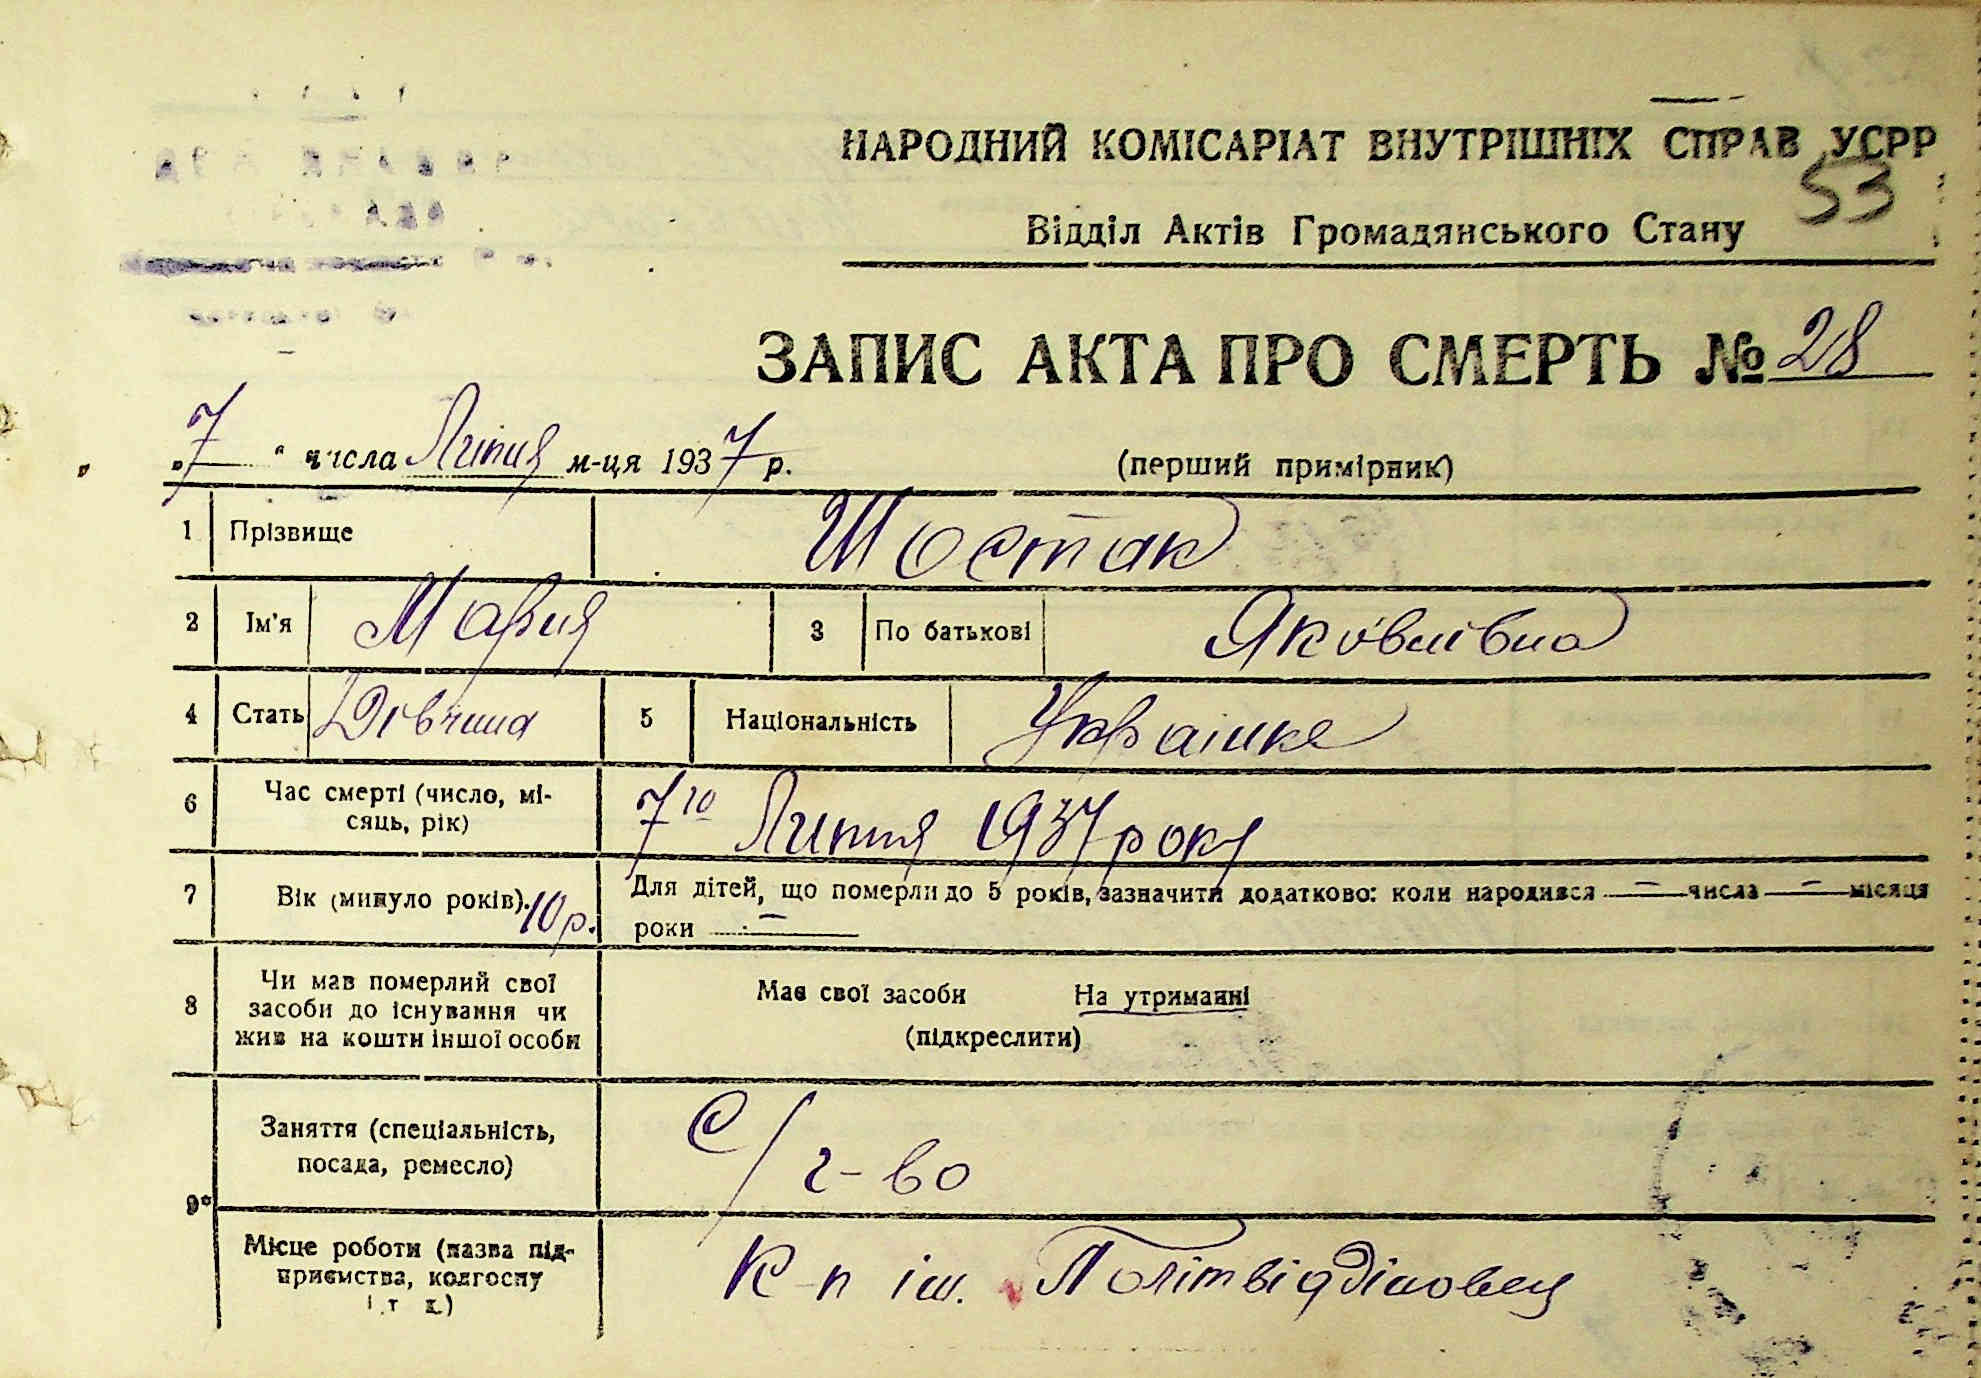 НАРОДНИЙ КОМІСАРІАТ ВНУТРІШНІХ СПРАВ УСРР
53
Відділ Актів Громадянського Стану
ЗАПИС АКТА ПРО СМЕРТЬ № 28
„7“ числа Липня м-ця 1937 р. (перший примірник)
1 Прізвище Шостак
2 Ім'я Мария 3 По батькові Яковлівна
4 Стать Дівчина 5 Національність Українка
6 Час смерті (число, мі-
сяць, рік) 7го Липня 1937 року
7 Вік (минуло років). 10 р. Для дітей, що померли до 5 років, зазначити додатково: коли народився — числа — місяця
роки —
8 Чи мав померлий свої
засоби до існування чи
жив на кошти іншої особи
Має свої засоби На утриманні
(підкреслити)
9* Заняття (спеціальність,
посада, ремесло) С/г-во
Місце роботи (назва під-
приємства, колгоспу
і т. д.) К-п ім. Політвідділовец